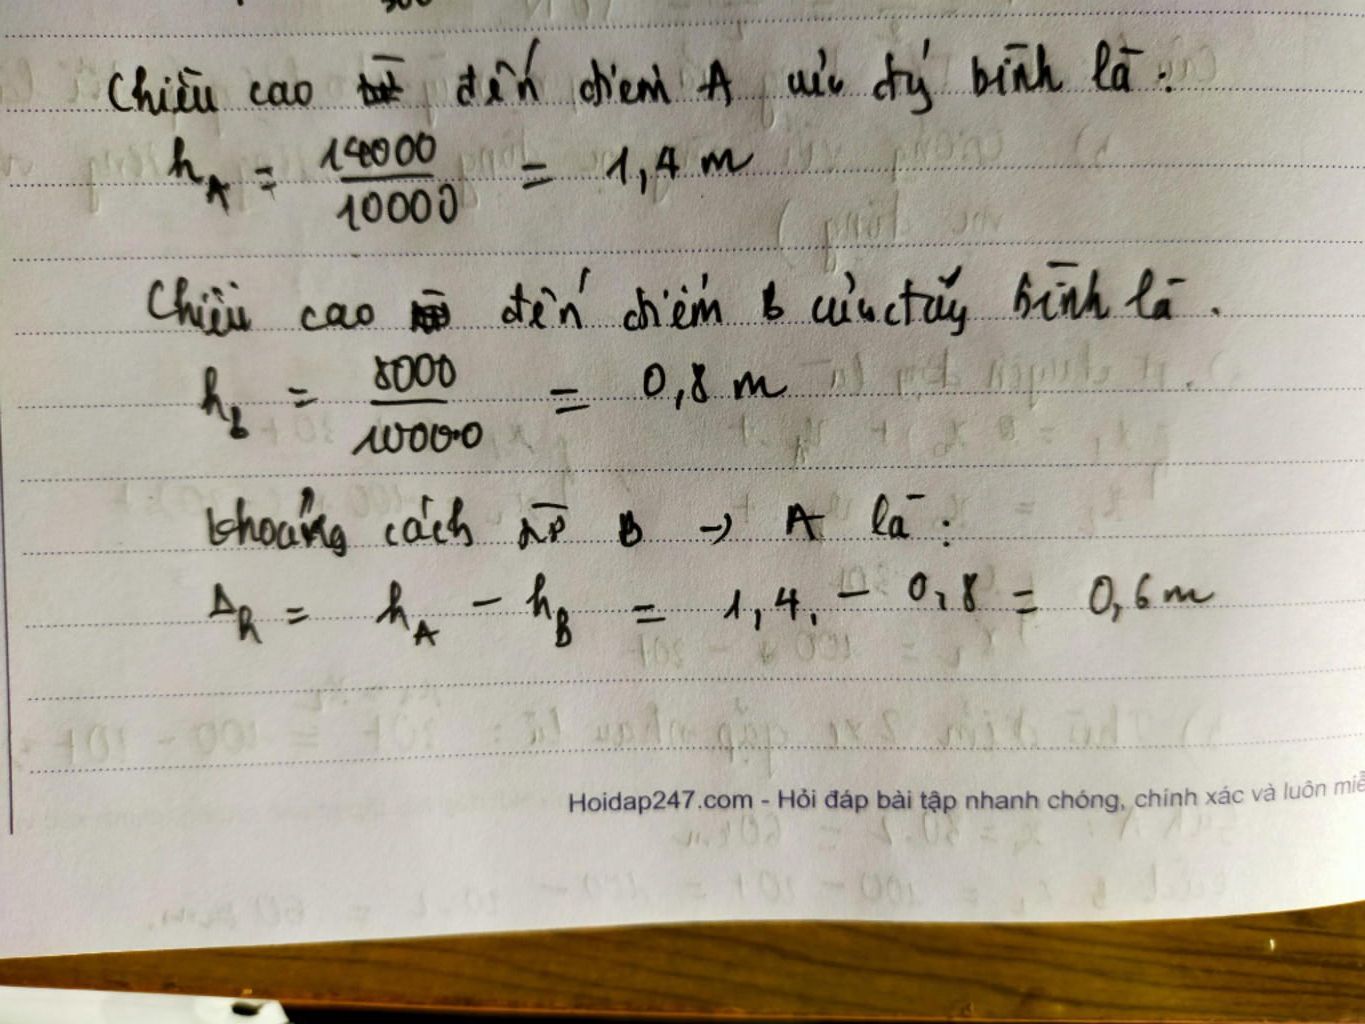 Chiều cao đến điểm A của đáy bình là:
h_A = 14000/10000 = 1,4 m
Chiều cao đến điểm B của đáy bình là.
h_B = 8000/10000 = 0,8 m
Khoảng cách từ B → A là:
Δh = h_A - h_B = 1,4 - 0,8 = 0,6 m
Hoidap247.com - Hỏi đáp bài tập nhanh chóng, chính xác và luôn